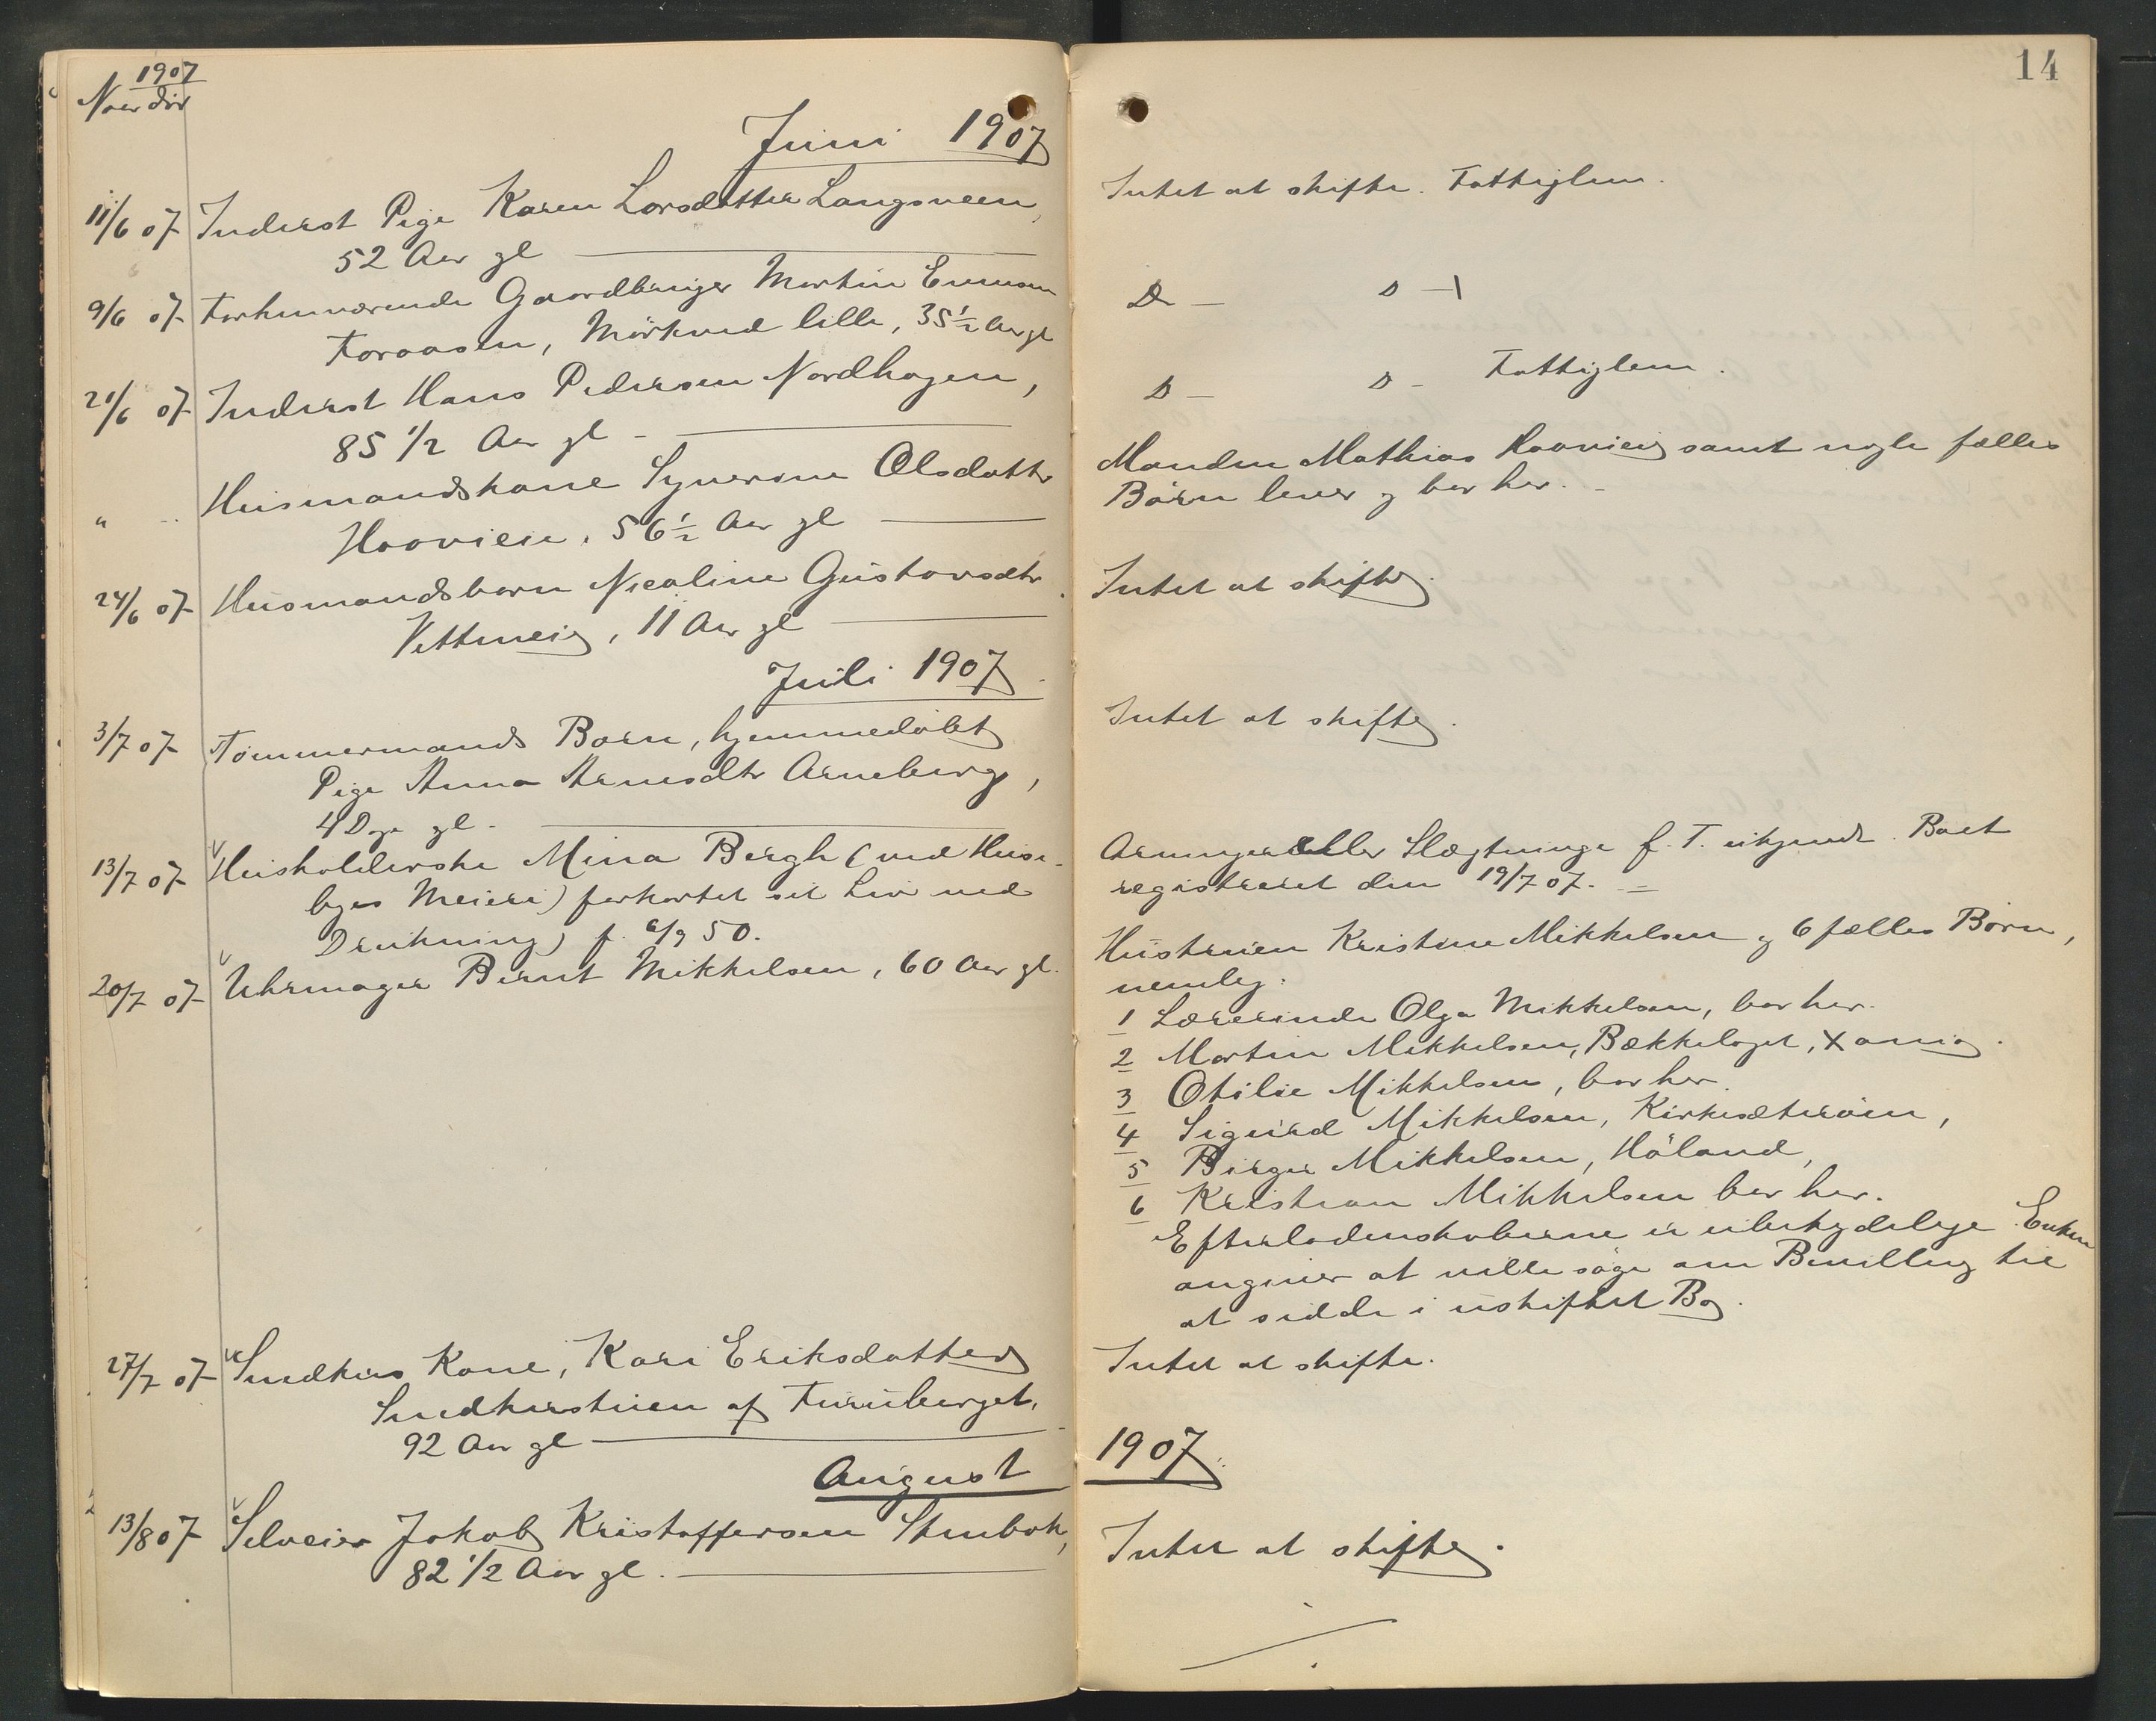 1907
Naar død
Juni 1907
11/6 07 Inderst Pige Karen Larsdatter Langsveen,
52 Aar gl
9/6 07 Forhenværende Gaardbruger Martin Evensen
Foraasen, Mörkved lille, 35 1/2 Aar gl
21/6 07 Inderst Hans Pedersen Nordhagen,
85 1/2 Aar gl -
" .. Husmandskone Synerine Olsdatter
Haavien, 56 1/2 Aar gl
24/6 07 Husmandsbarn Nicoline Gustavsdtr
11 Aar gl
Juli 1907
3/7 07 Tømmermands Barn, hjemmedöbt
Pige Anna Arnesdtr Arneberg,
4 Dge gl.
13/7 07 Husholderske Mina Bergh (ved Huse-
byes Meieri) forkortet sit Liv ved
Drukning) f. 6/9 50.
20/7 07 Uhrmager Bernt Mikkelsen, 60 Aar gl.
27/7 07 Smedkers Kone, Kari Eriksdatter
Smedkerstuen af Furuberget,
92 Aar gl
August
13/8 07 Selveier Jakob Kristoffersen Stenbæk,
82 1/2 Aar gl.
14
Intet at skifte. Fattiglem.
D — D —
D — D — Fattiglem.
Manden Mathias Haavien samt nogle fælles
Börn lever og bor her. -
Intet at skifte.
Intet at skifte.
Arvinger eller Slægtninge f. T. ukjendt. Boet
registreret den 19/7 07. =
Hustruen Kristine Mikkelsen og 6 fælles Börn,
nemlig:
1 Lærerinde Olga Mikkelsen, bor her.
2 Martin Mikkelsen, Bækkelaget, X ania.
3 Otilie Mikkelsen, bor her.
4 Sigurd Mikkelsen, Kirkesæteröen,
5 Birger Mikkelsen, Höland,
6 Kristian Mikkelsen bor her.
Efterladenskaberne er ubetydelige. Enken
angiver at ville söge om Bevilling til
at sidde i uskiftet Bo.
Intet at skifte.
1907.
Intet at skifte.